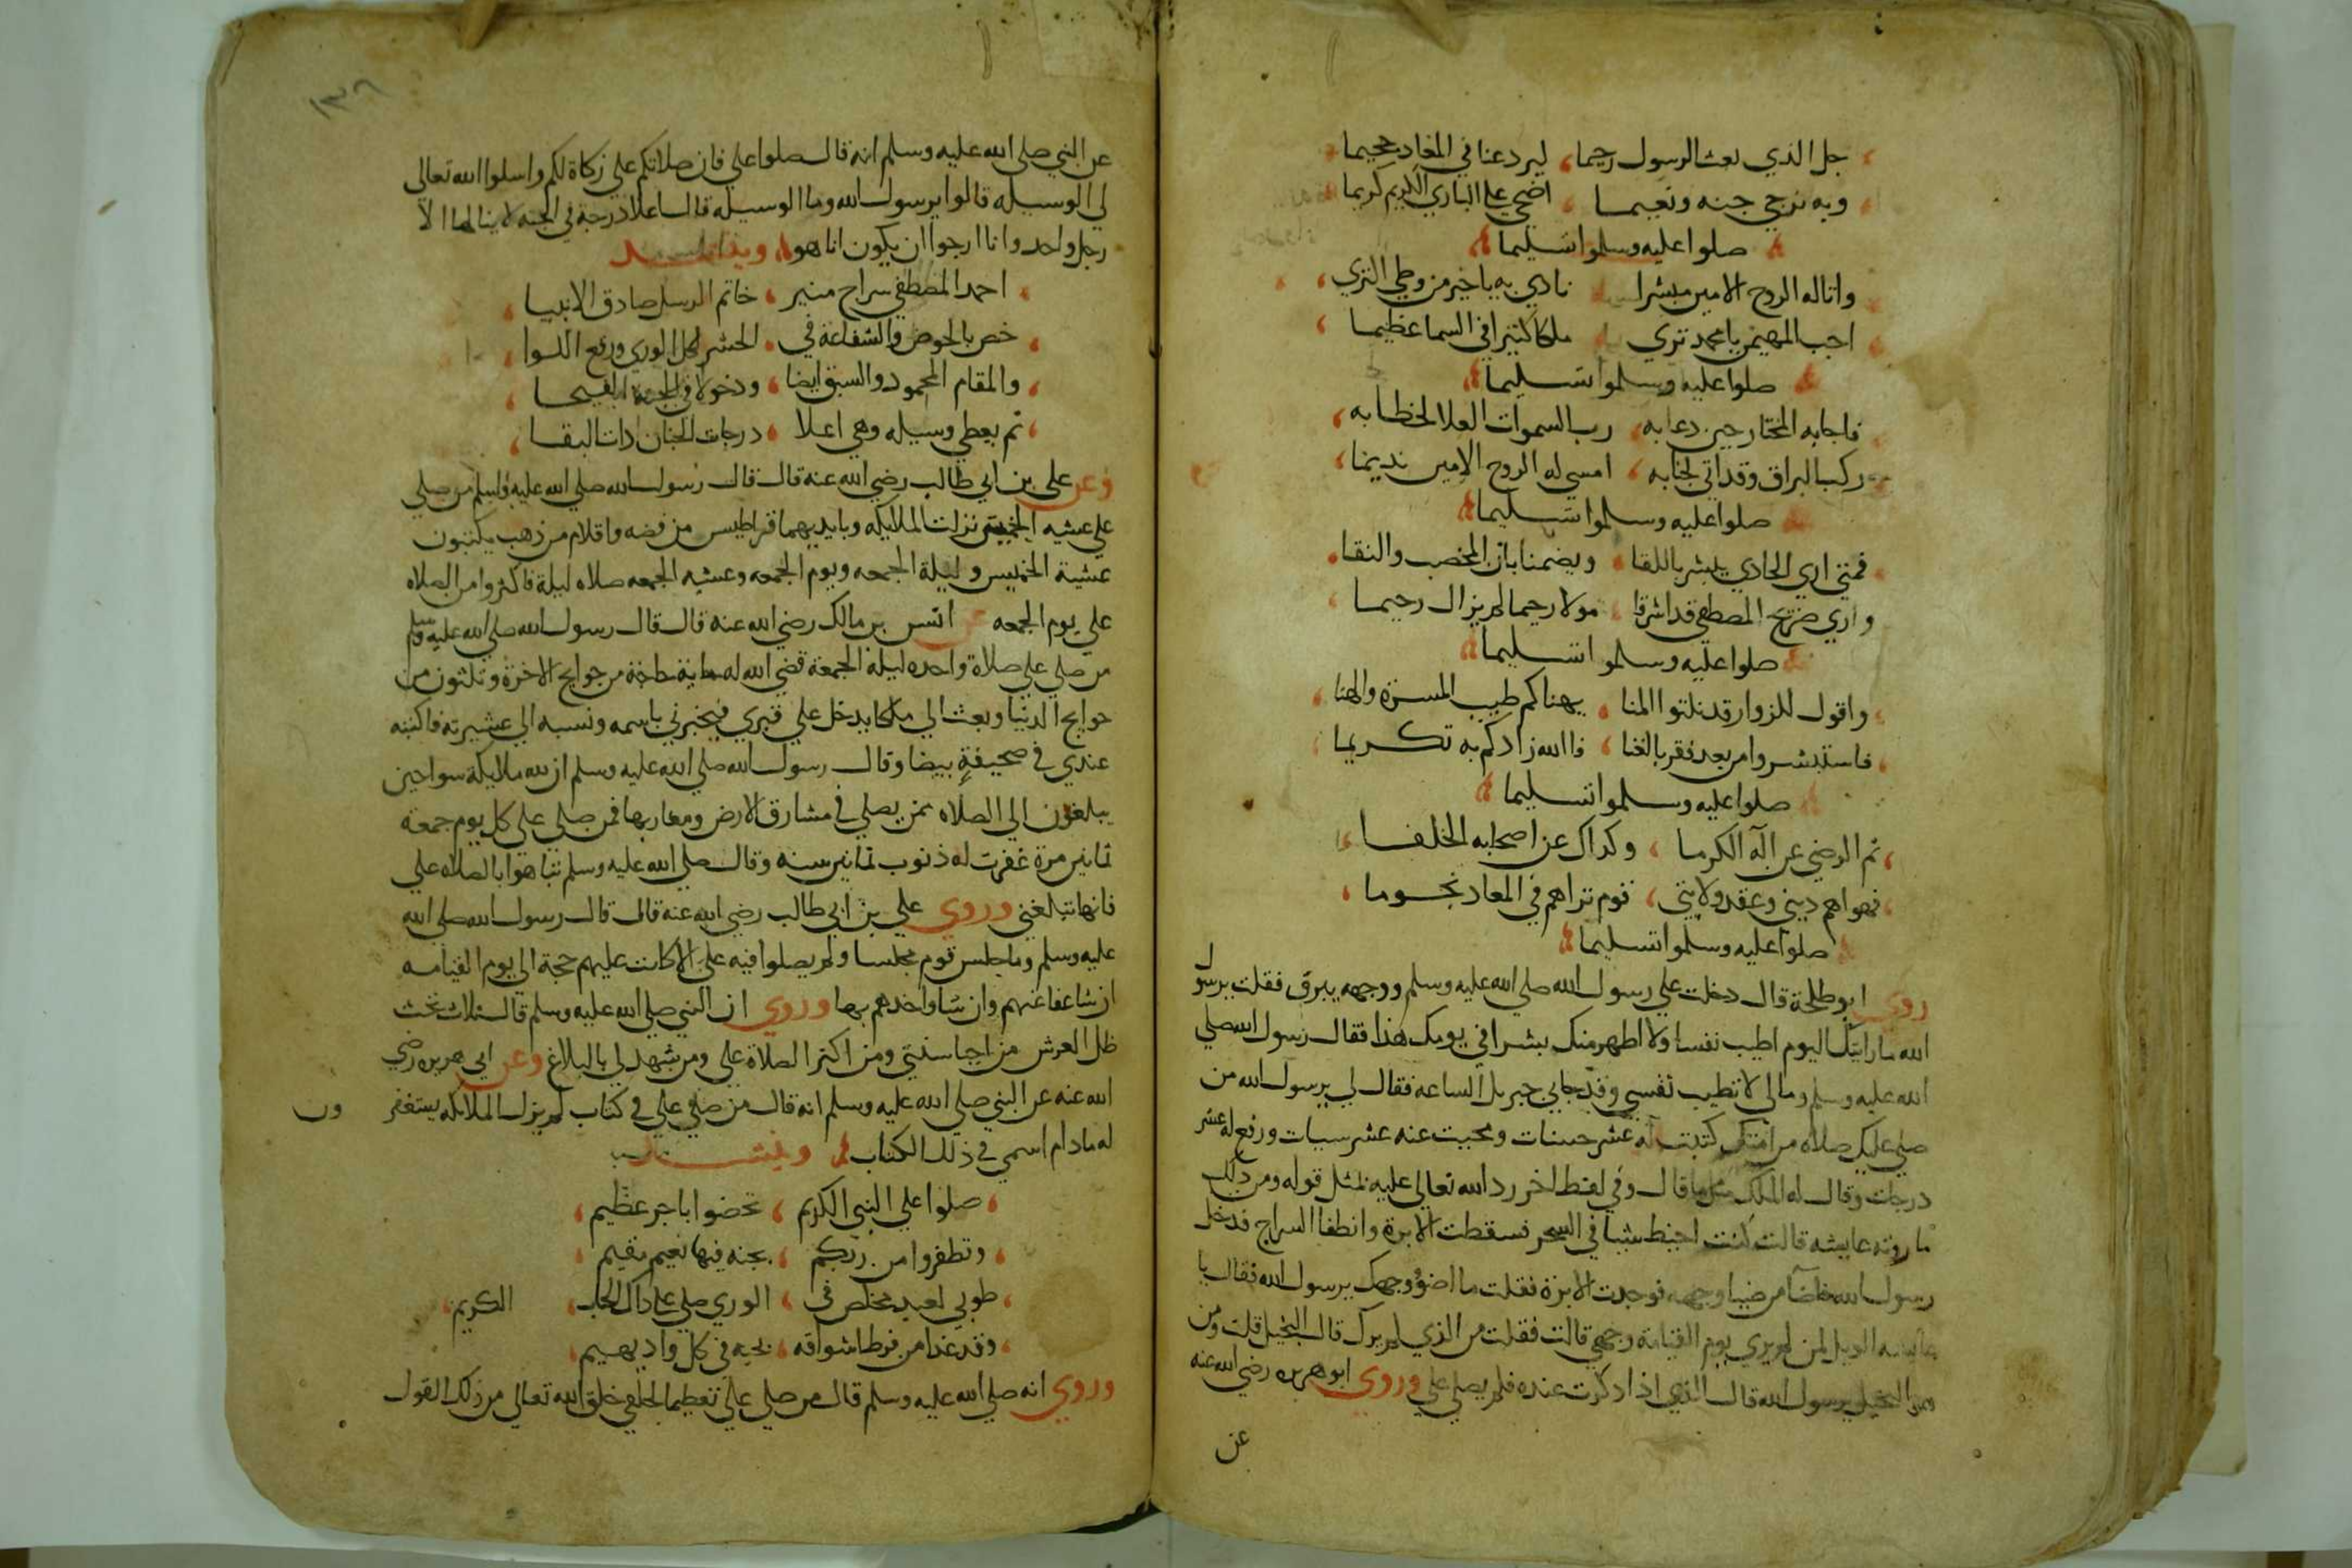 جل الذي بعث الرسول رحيما ليرد عنا في المعاد جحيما
وبه نرجي جنه ونعيما اضحي علي الباري الكريم كريما
صلوا عليه وسلموا تسليما
واتاله الروح الامين مبشرا نادي به ياخير من وطي الثري
اجب المهيمن يا محمد تري ملكا كثيرا في السما عظيما
صلوا عليه وسلموا تسليما
فاجابه المختار حين دعابه رب السموات العلا لخطابه
ركب البراق وقد اتي لجنابه امسي له الروح الامين نديما
صلوا عليه وسلموا تسليما
فمتي اري الحادي يبشر باللقا ويضمنا بان المخصب والنقا
واري ضريح المصطفي قد اشرقا مولا رحيما لم يزال رحيما
صلوا عليه وسلموا تسليما
واقول للزوار قد نلتوا المنا يهناكم طيب المسرة والهنا
فاستبشروا من بعد فقر بالغنا فاالله زادكم به تكريما
صلوا عليه وسلموا تسليما
ثم الرضي عن اله الكرما وكداك عن اصحابه الخلفا
فهواهم ديني وعقد ولايتي قوم تراهم في المعاد نجوما
صلوا عليه وسلموا تسليما
روي ابو طلحة قال دخلت علي رسول الله صلي الله عليه وسلم ووجهه يبرق فقلت يرسول
الله ما رايتك اليوم اطيب نفسا ولا اظهر منك بشرا في يومك هذا فقال رسول الله صلي
الله عليه وسلم ومالي لا تطيب نفسي وقد جاني جبريل الساعه فقال لي يرسول الله من
صلي عليك صلاه من امتك كتبت له عشر حسنات ومحيت عنه عشر سيات ورفع له عشر
درجات وقال له الملك مثل ما قال وفي لفظ اخر رد الله تعالي عليه بمثل قوله ومن ذلك
ما روته عايشه قالت كنت اخيط شيا في السحر فسقطت الابرة وانطفا السراج فدخل
رسول الله فاضا من ضيا وجهه فوجدت الابرة فقلت ما اضؤ وجهك يرسول الله فقال يا
عايشه الويل لمن لم يري يوم القيامة وجهي قالت فقلت من الذي لم يرك قال البخيل قلت ومن
البخيل يرسول الله قال الذي اذا دكرت عنده فلم يصلي علي وروي ابو هريره رضي الله عنه
عن
١٣٦
عن النبي صلي الله عليه وسلم انه قال صلوا علي فان صلاتكم علي زكاة لكم واسلوا الله تعالي
لي الوسيله قالوا يرسول الله وما الوسيله قال اعلا درجة في الجنه لا ينالها الا
رجل واحد وانا ارجوا ان يكون انا هو
احمد المصطفي سراج منير خاتم الرسل صادق الانبيا
خص بالحوض والشفاعة في الحشر لكل الوري ورفع اللوا
والمقام المحمود والسبق ايضا ودخولا في الجنة الفيحا
ثم يعطي وسيله وهي اعلا درجات الجنان دات البقا
وعن علي بن ابي طالب رضي الله عنه قال قال رسول الله صلي الله عليه وسلم من صلي
علي عشيه الخميس نزلت الملايكه وبايديهما قراطيس من فضه واقلام من ذهب يكتبون
عشية الخميس وليلة الجمعه ويوم الجمعه وعشيه الجمعه صلاه ليلة فاكثروا من الصلاه
علي يوم الجمعه عن انس بن مالك رضي الله عنه قال قال رسول الله صلي الله عليه وسلم
من صلي علي صلاة واحده ليلة الجمعة قضي الله له ماية حاجة من حوايج الاخرة وثلثون من
حوايج الدنيا وبعث الي ملكا يدخل علي قبري فيخبرني باسمه ونسبه الي عشيرته فاكتبه
عندي في صحيفة بيضا وقال رسول الله صلي الله عليه وسلم ان لله ملايكة سواحين
يبلغون الي الصلاه ممن يصلي في مشارق الارض ومغاربها فمن صلي علي كل يوم جمعة
ثمانين مرة غفرت له ذنوب ثمانين سنه وقال صلي الله عليه وسلم تباهوا بالصلاه علي
فانها تبلغني وروي علي بن ابي طالب رضي الله عنه قال قال رسول الله صلي الله
عليه وسلم وما جلس قوم مجلسا ولم يصلوا فيه علي الا كانت عليهم حجة الي يوم القيامه
ان شا عفا عنهم وان شا واخدهم بها وروي ان النبي صلي الله عليه وسلم قال ثلاث تحت
ظل العرش من احيا سنتي ومن اكثر الصلاة علي ومن شهد لي بالبلاغ وعن ابي هريره رضي
الله عنه عن النبي صلي الله عليه وسلم انه قال من صلي علي في كتاب لم يزل الملايكه يستغفرون
له مادام اسمي في ذلك الكتاب
صلوا علي النبي الكريم تحضوا باجر عظيم
وتظفروا من ربكم بجنه فيها نعيم مقيم
طوبي لعبد مخلص في الوري صلي علي داك الجاب الكريم
وقد غدا من فرط اشواقه بحبه في كل واد يهيم
وروي انه صلي الله عليه وسلم قال من صلي علي تعظيما لحقي خلق الله تعالي من ذلك القول